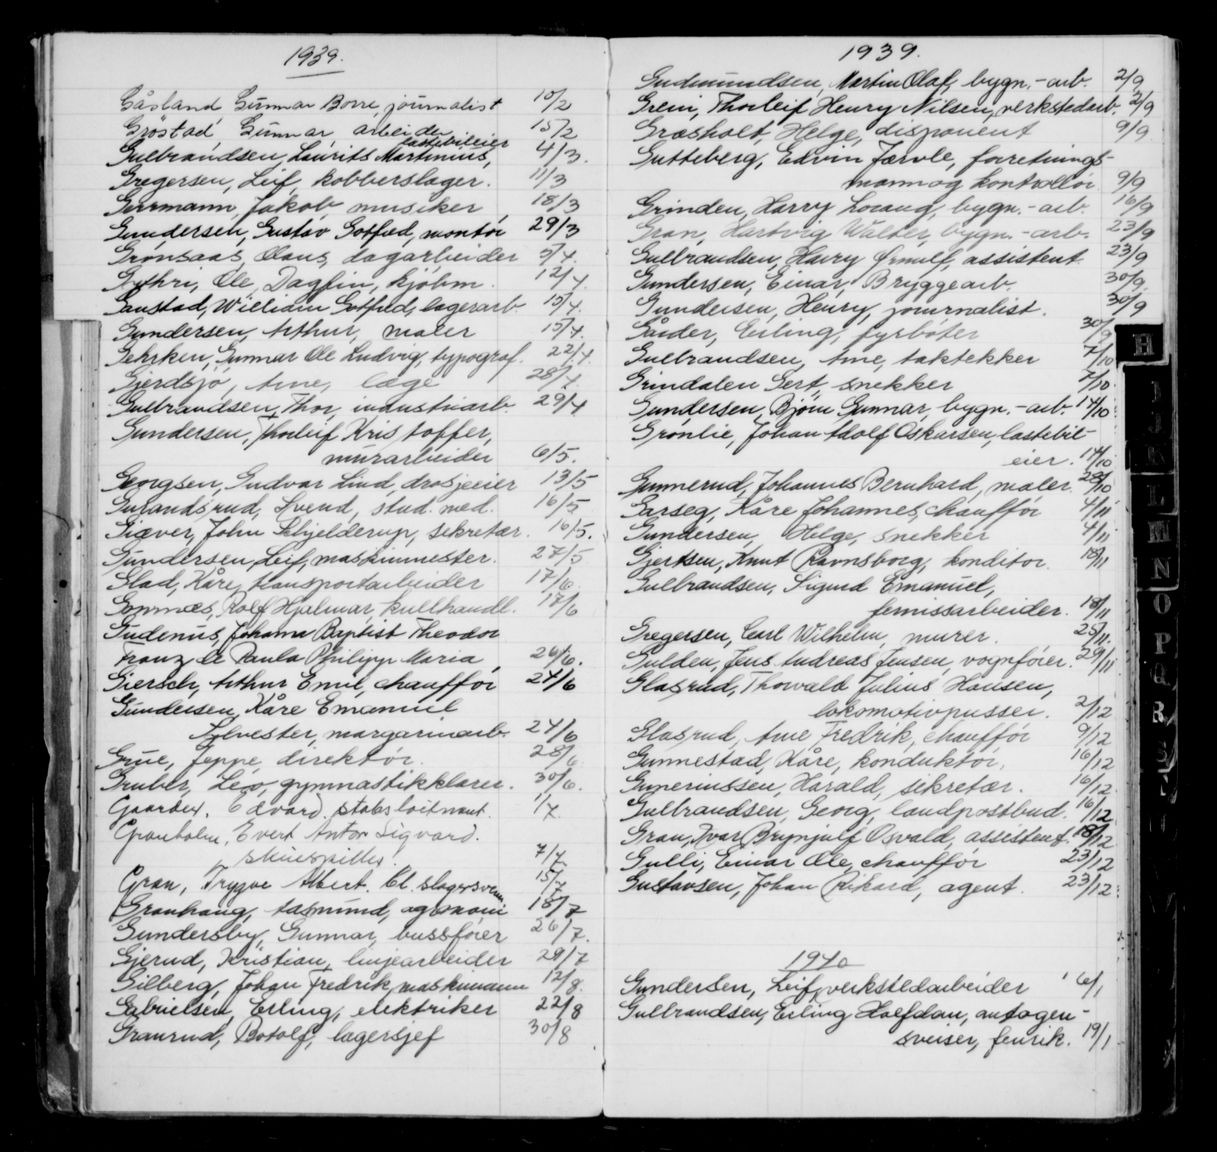 1939.
Gåsland Gunnar Borre, journalist 10/2
Grøstad Gunnar arbeider 15/2
lastebileier
Gulbrandsen, Laurits Martinius, 4/3.
Gregersen, Leif, kobberslager. 11/3
Germann, Jakob musiker 18/3
Gundersen, Gustav Gotfred, montør 29/3
Grønsaas, Claus, dagarbeider 5/4.
Gythri, Ole, Dagfin, kjøbm. 12/4.
Gaustad, William Gotfred, lagerarb. 15/4.
Gundersen, Arthur, maler 15/4.
Gehrken, Gunnar Ole Ludvig, typograf. 22/4.
Gjerdsjø, Arne, læge 28/4.
Gulbrandsen, Thor, industriarb. 29/4
Gundersen, Thorleif Kristoffer,
murarbeider 6/5.
Georgsen, Gudvar Lind, drosjeeier 13/5
Gulandsrud, Svend, stud. med. 16/5
Giæver, John Schjelderup, sekretær. 16/5.
Gundersen, Leif, maskinmester. 27/5
Glad, Kåre, transportarbeider 17/6.
Gomnæs, Rolf Hjalmar kullhandl. 17/6
Gudenus, Johann Baptist Theodor
Franz de Paula Philipp Maria, 24/6.
Giersch, Arthur Emil, chauffør 24/6
Gundersen, Kåre Emanuel
Sylvester, margarinarb. 24/6
Grue, Jeppe, direktør. 28/6
Gruber, Leo, gymnastikklærer. 30/6.
Gaarder, Edvard, stabsløitnant. 1/7
Granholm, Evert Anton Sigvard.
skuespiller. 7/7
Gran, Trygve Albert. Cl. slagersvenn 15/7
Granhaug, Aasmund, agronom 18/7
Gundersby, Gunnar, bussfører 26/7.
Gjerud, Kristian, linjearbeider 29/7
Gilberg, Johan Fredrik, maskinmann 12/8.
Gabrielsen, Erling, elektriker 22/8
Graurud, Botolf, lagersjef 30/8
1939.
Gudmundsen, Martin Olaf, bygn.-arb. 2/9
Greni, Thorleif Henry Nilsen, verkstedarb. 2/9
Græsholt, Helge, disponent 9/9
Gutteberg, Edvin Jarvle, forretnings-
mann og kontrollør 9/9
Grinden, Harry Lorang, bygn.-arb. 16/9
Gran, Hartvig Walter, bygn.-arb. 23/9
Gulbrandsen, Harry Ørnulf, assistent 23/9
Gundersen, Einar, Bryggearb. 30/9.
Gundersen, Henry, journalist. 30/9
Gåsder, Erling, fyrbøter 30/9
Gulbrandsen, Arne, taktekker 7/10
Grindalen Gert, snekker 7/10
Gundersen, Bjørn Gunnar, bygn.-arb. 14/10
Grønlie, Johan Adolf Oskarsen, lastebil-
eier. 14/10
Gunnerud, Johannes Bernhard, maler. 28/10
Garseg, Kåre Johannes, chauffør 4/11
Gundersen, Helge, snekker 4/11
Gjertsen, Knut Ravnsborg, konditor. 18/11
Gulbrandsen, Sigurd Emanuel,
fernissarbeider. 18/11
Gregersen, Carl Wilhelm, murer. 25/11.
Gulden, Jens Andreas Jensen, vognfører. 29/11
Glasrud, Thorvald Julius Hansen,
lokomotivpusser. 2/12
Glasrud, Arne Fredrik, chauffør 9/12
Gunnestad, Kåre, konduktør, 16/12
Guneriussen, Harald, sekretær. 16/12.
Gulbrandsen, Georg, landpostbud. 16/12
Gran, Ivar Brynjulf Osvald, assistent. 18/12
Gulli, Einar Ole, chauffør 23/12
Gustavsen, Johan Rikard, agent. 23/12.
1940
Gundersen, Leif, verkstedarbeider 6/1
Gulbrandsen, Erling Halfdan, autogen-
sveiser, fenrik. 19/1
H
I
J
K
L
M
N
O
P
Q
R
S